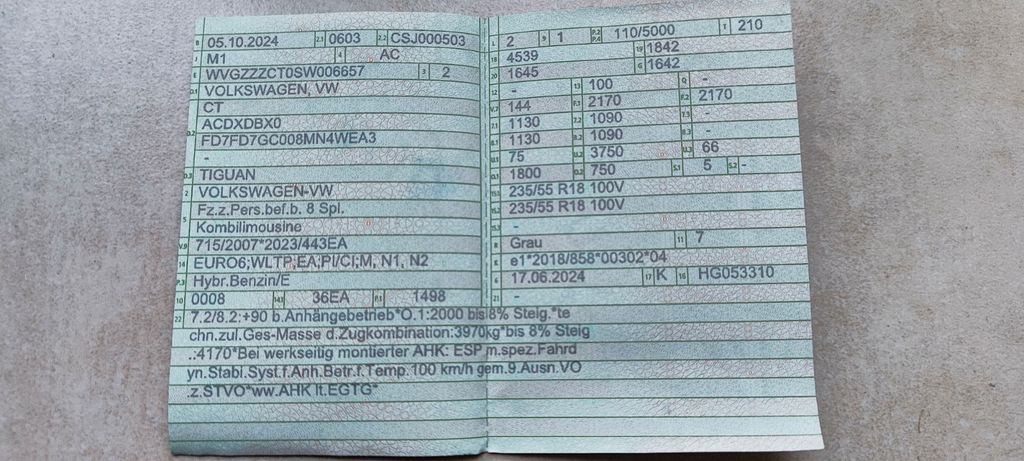 B 05.10.2024 2.1 0603 2.2 CSJ000503
J M1 4 AC
E WVGZZZCT0SW006657 3 2
D.1 VOLKSWAGEN, VW
CT
ACDXDBX0
D.2 FD7FD7GC008MN4WEA3
-
D.3 TIGUAN
2 VOLKSWAGEN-VW
5 Fz.z.Pers.bef.b. 8 Spl.
Kombilimousine
V.9 715/2007*2023/443EA
14 EURO6;WLTP;EA;PI/CI;M, N1, N2
P.3 Hybr.Benzin/E
10 0008 14.1 36EA P.1 1498
L 2 9 1 P.2 P.4 110/5000 T 210
18 4539 19 1842
20 1645 G 1642
12 - 13 100 Q -
V.7 144 F.1 2170 F.2 2170
7.1 1130 7.2 1090 7.3 -
8.1 1130 8.2 1090 8.3 -
U.1 75 U.2 3750 U.3 66
O.1 1800 O.2 750 S.1 5 S.2 -
15.1 235/55 R18 100V
15.2 235/55 R18 100V
15.3 -
R Grau 11 7
K e1*2018/858*00302*04
6 17.06.2024 17 K 16 HG053310
21 -
22 7.2/8.2:+90 b.Anhängebetrieb*O.1:2000 bis 8% Steig.*te
chn.zul.Ges-Masse d.Zugkombination:3970kg*bis 8% Steig
.:4170*Bei werkseitig montierter AHK: ESP m.spez.Fahrd
yn.Stabl.Syst.f.Anh.Betr.f.Temp.100 km/h gem.9.Ausn.VO
.z.STVO*ww.AHK lt.EGTG*